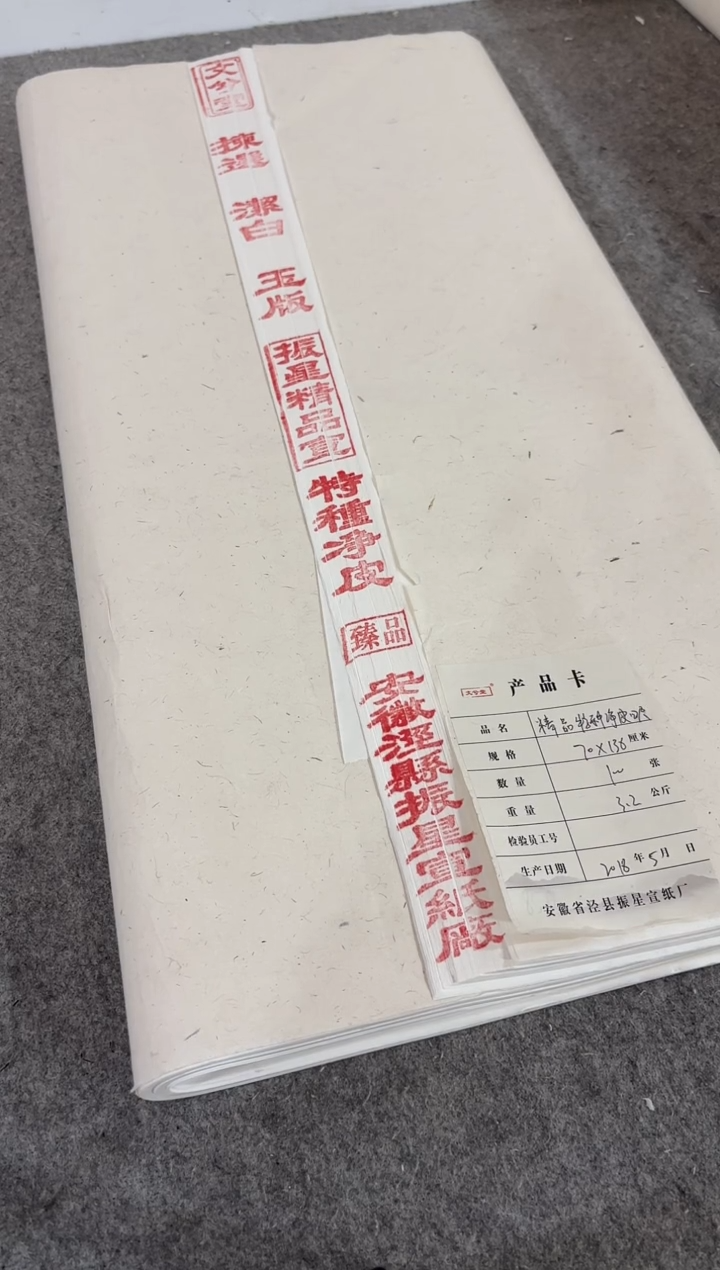 揀選
潔白
玉版
振星精品宣
特種净皮
臻品
安徽涇縣振星宣紙廠
产品卡
品名 精品特种净皮四尺
规格 70×138 厘米
数量 100 张
重量 3.2 公斤
检验员工号
生产日期 2018 年 5 月 日
安徽省泾县振星宣纸厂